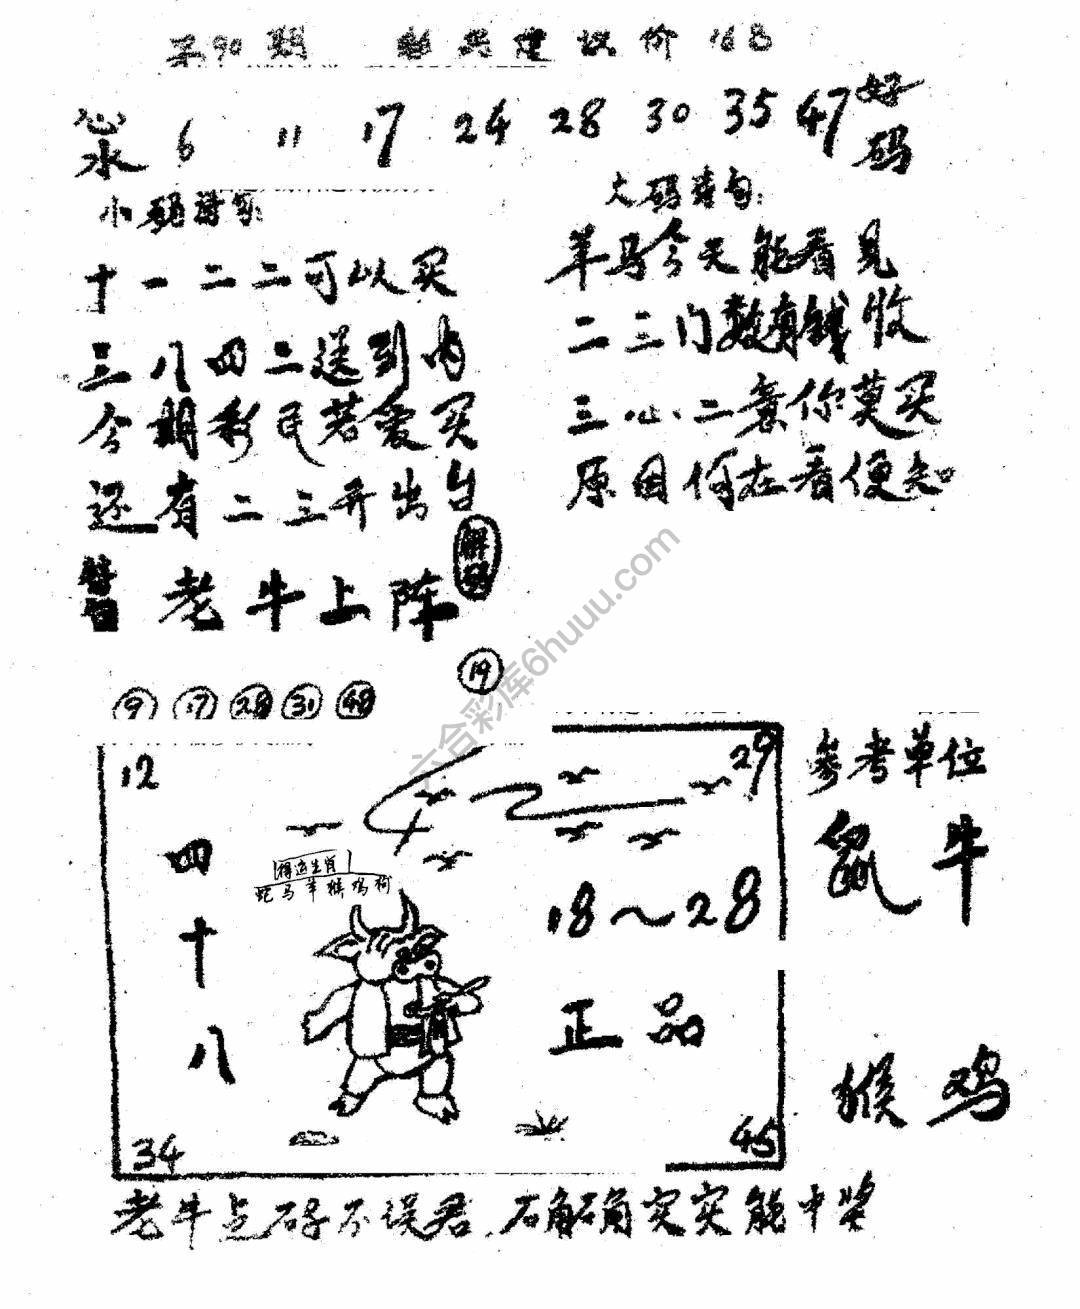 第90期 彩民建议价 168
心水 6 11 17 24 28 30 35 47 好码
小码诗句:
十一二二可以买
三八四二送到内
今期彩民若爱买
还有二三开出台
大码诗句:
羊马今天能看见
二三门数有钱收
三心二意你莫买
原因何在看便知
老牛上阵
解码
19
9 17 28 31 48
12 29
四十八
得道生肖
蛇马羊猴鸡狗
18～28
正品
34 45
参考单位
鼠 牛
猴 鸡
老牛点码不误君 的确实实能中奖
六合彩库6huuu.com